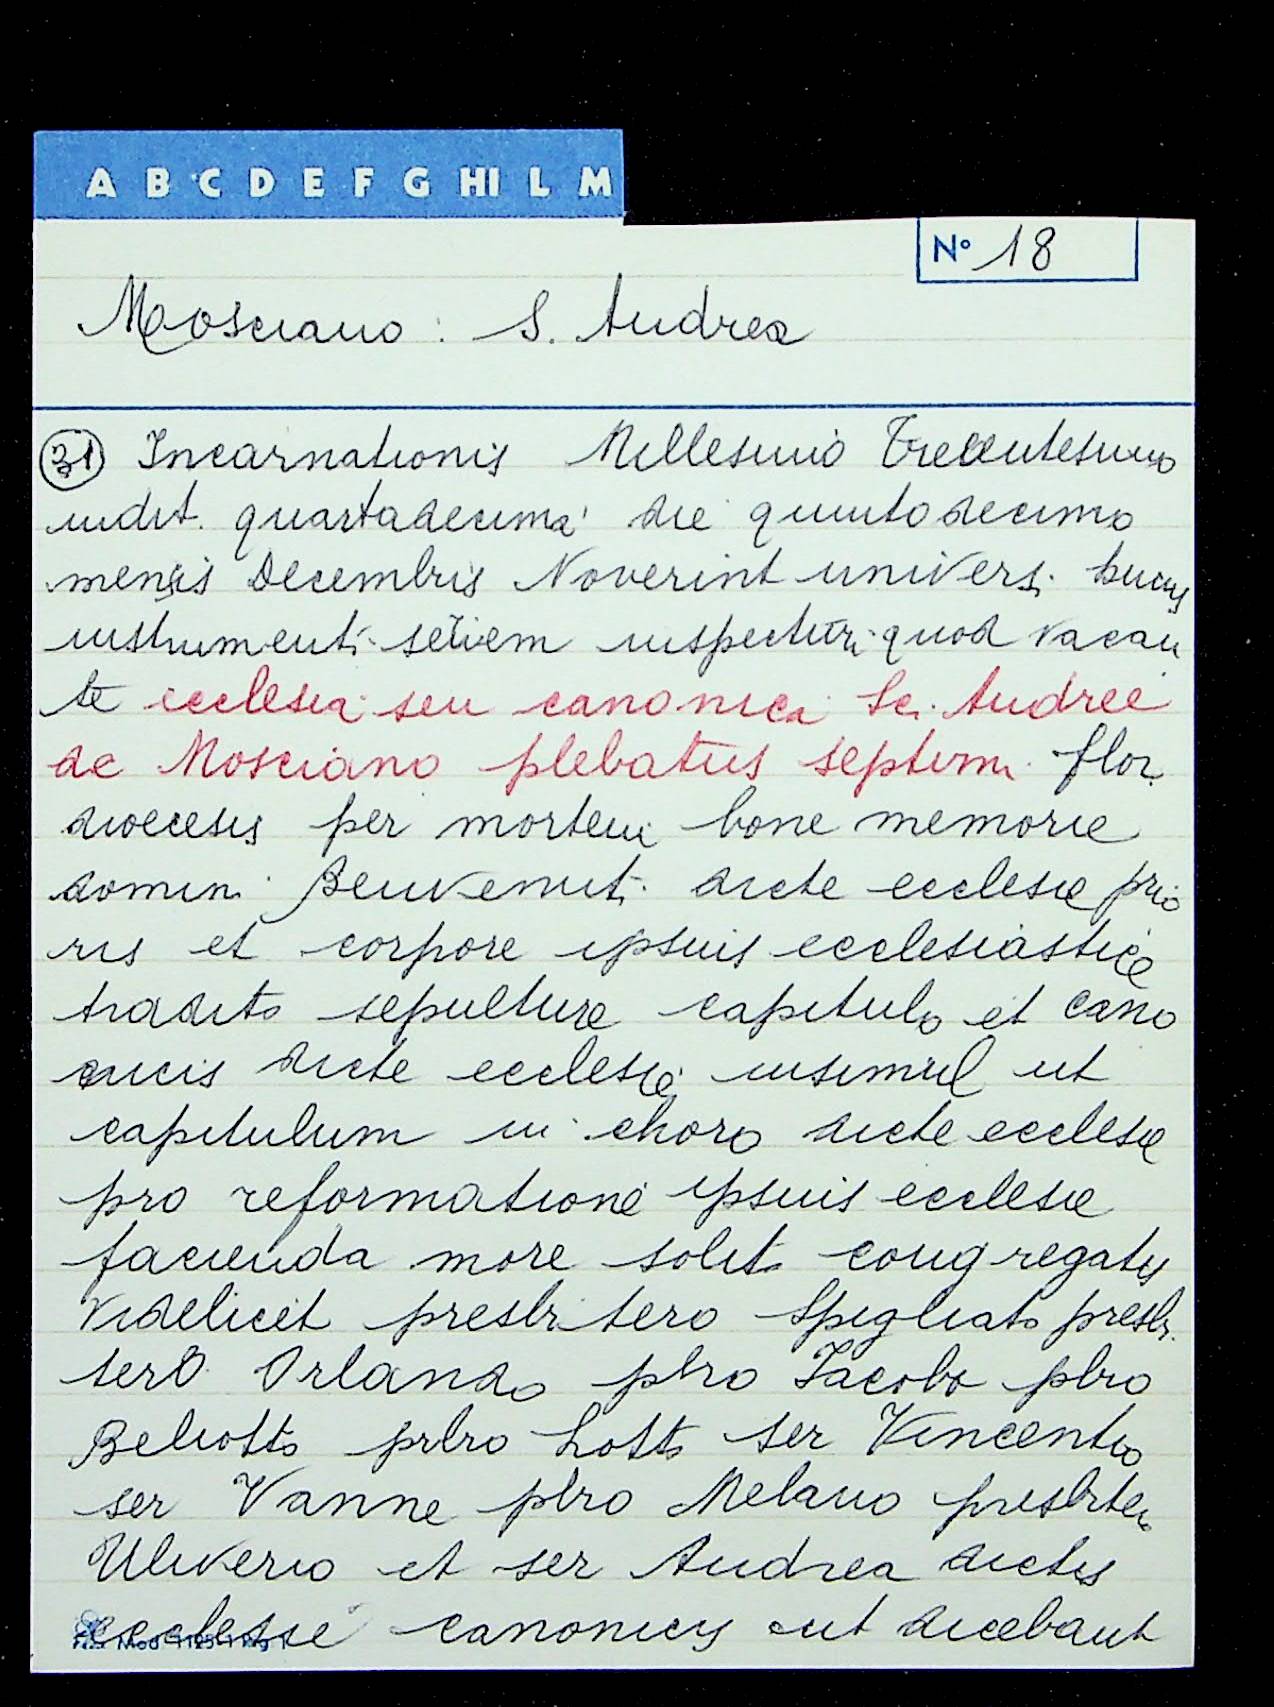 A B C D E F G HI L M
N° 18
Mosciano: S. Andrea
31 Incarnationis Millesimo Trecentesimo
indit. quartadecima die quinto decimo
mensis Decembris Noverint univers. huius
instrumenti seriem inspecturi quod vacan
te ecclesia seu canonica Sci. Andree
de Mosciano plebatus septimi flor.
diocesis per mortem bone memorie
domin. Benvenuti dicte ecclesie prio
ris et corpore ipsuis ecclesiastice
tradito sepulture capitulo et cano
nicis dicte ecclesie insimul ut
capitulum in choro dicte ecclesie
pro reformatione ipsuis ecclesie
facienda more solit. congregatis
videlicet presbitero Spigliato presbi
tero Orlando pbro Jacobo pbro
Beliotto prbro Lotto ser Vincentio
ser Vanne pbro Melano presbitero
Uliverio et ser Andrea dictis
ecclesie canonicis ut dicebant